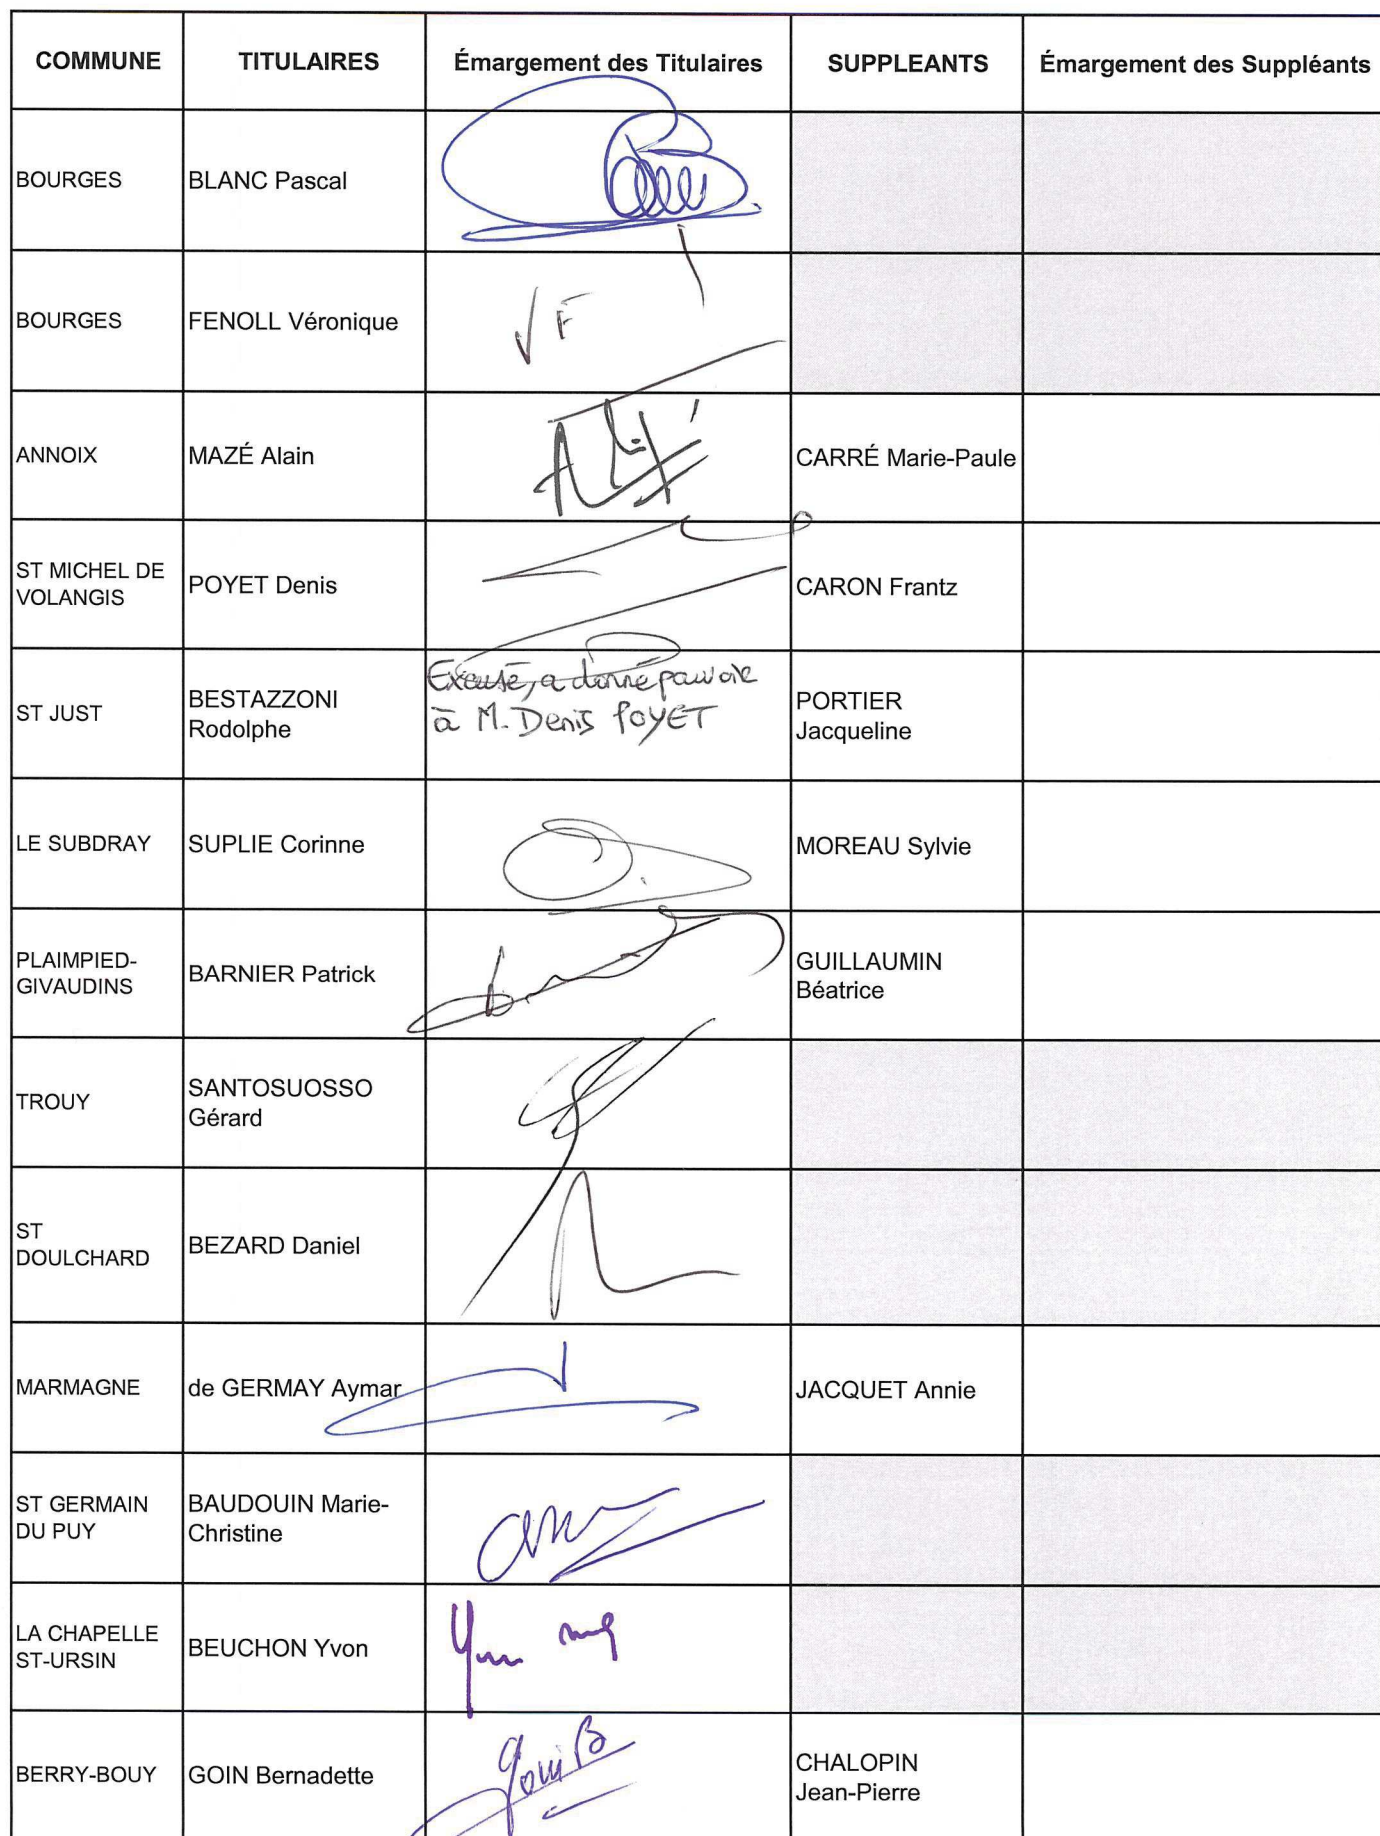 COMMUNE TITULAIRES Émargement des Titulaires SUPPLEANTS Émargement des Suppléants
BOURGES BLANC Pascal
BOURGES FENOLL Véronique VF
ANNOIX MAZÉ Alain CARRÉ Marie-Paule
ST MICHEL DE
VOLANGIS
POYET Denis CARON Frantz
ST JUST
BESTAZZONI
Rodolphe
Excusé, a donné pouvoir
à M. Denis POYET
PORTIER
Jacqueline
LE SUBDRAY SUPLIE Corinne MOREAU Sylvie
PLAIMPIED-
GIVAUDINS
BARNIER Patrick
GUILLAUMIN
Béatrice
TROUY
SANTOSUOSSO
Gérard
ST
DOULCHARD
BEZARD Daniel
MARMAGNE de GERMAY Aymar JACQUET Annie
ST GERMAIN
DU PUY
BAUDOUIN Marie-
Christine
LA CHAPELLE
ST-URSIN
BEUCHON Yvon
BERRY-BOUY GOIN Bernadette
CHALOPIN
Jean-Pierre